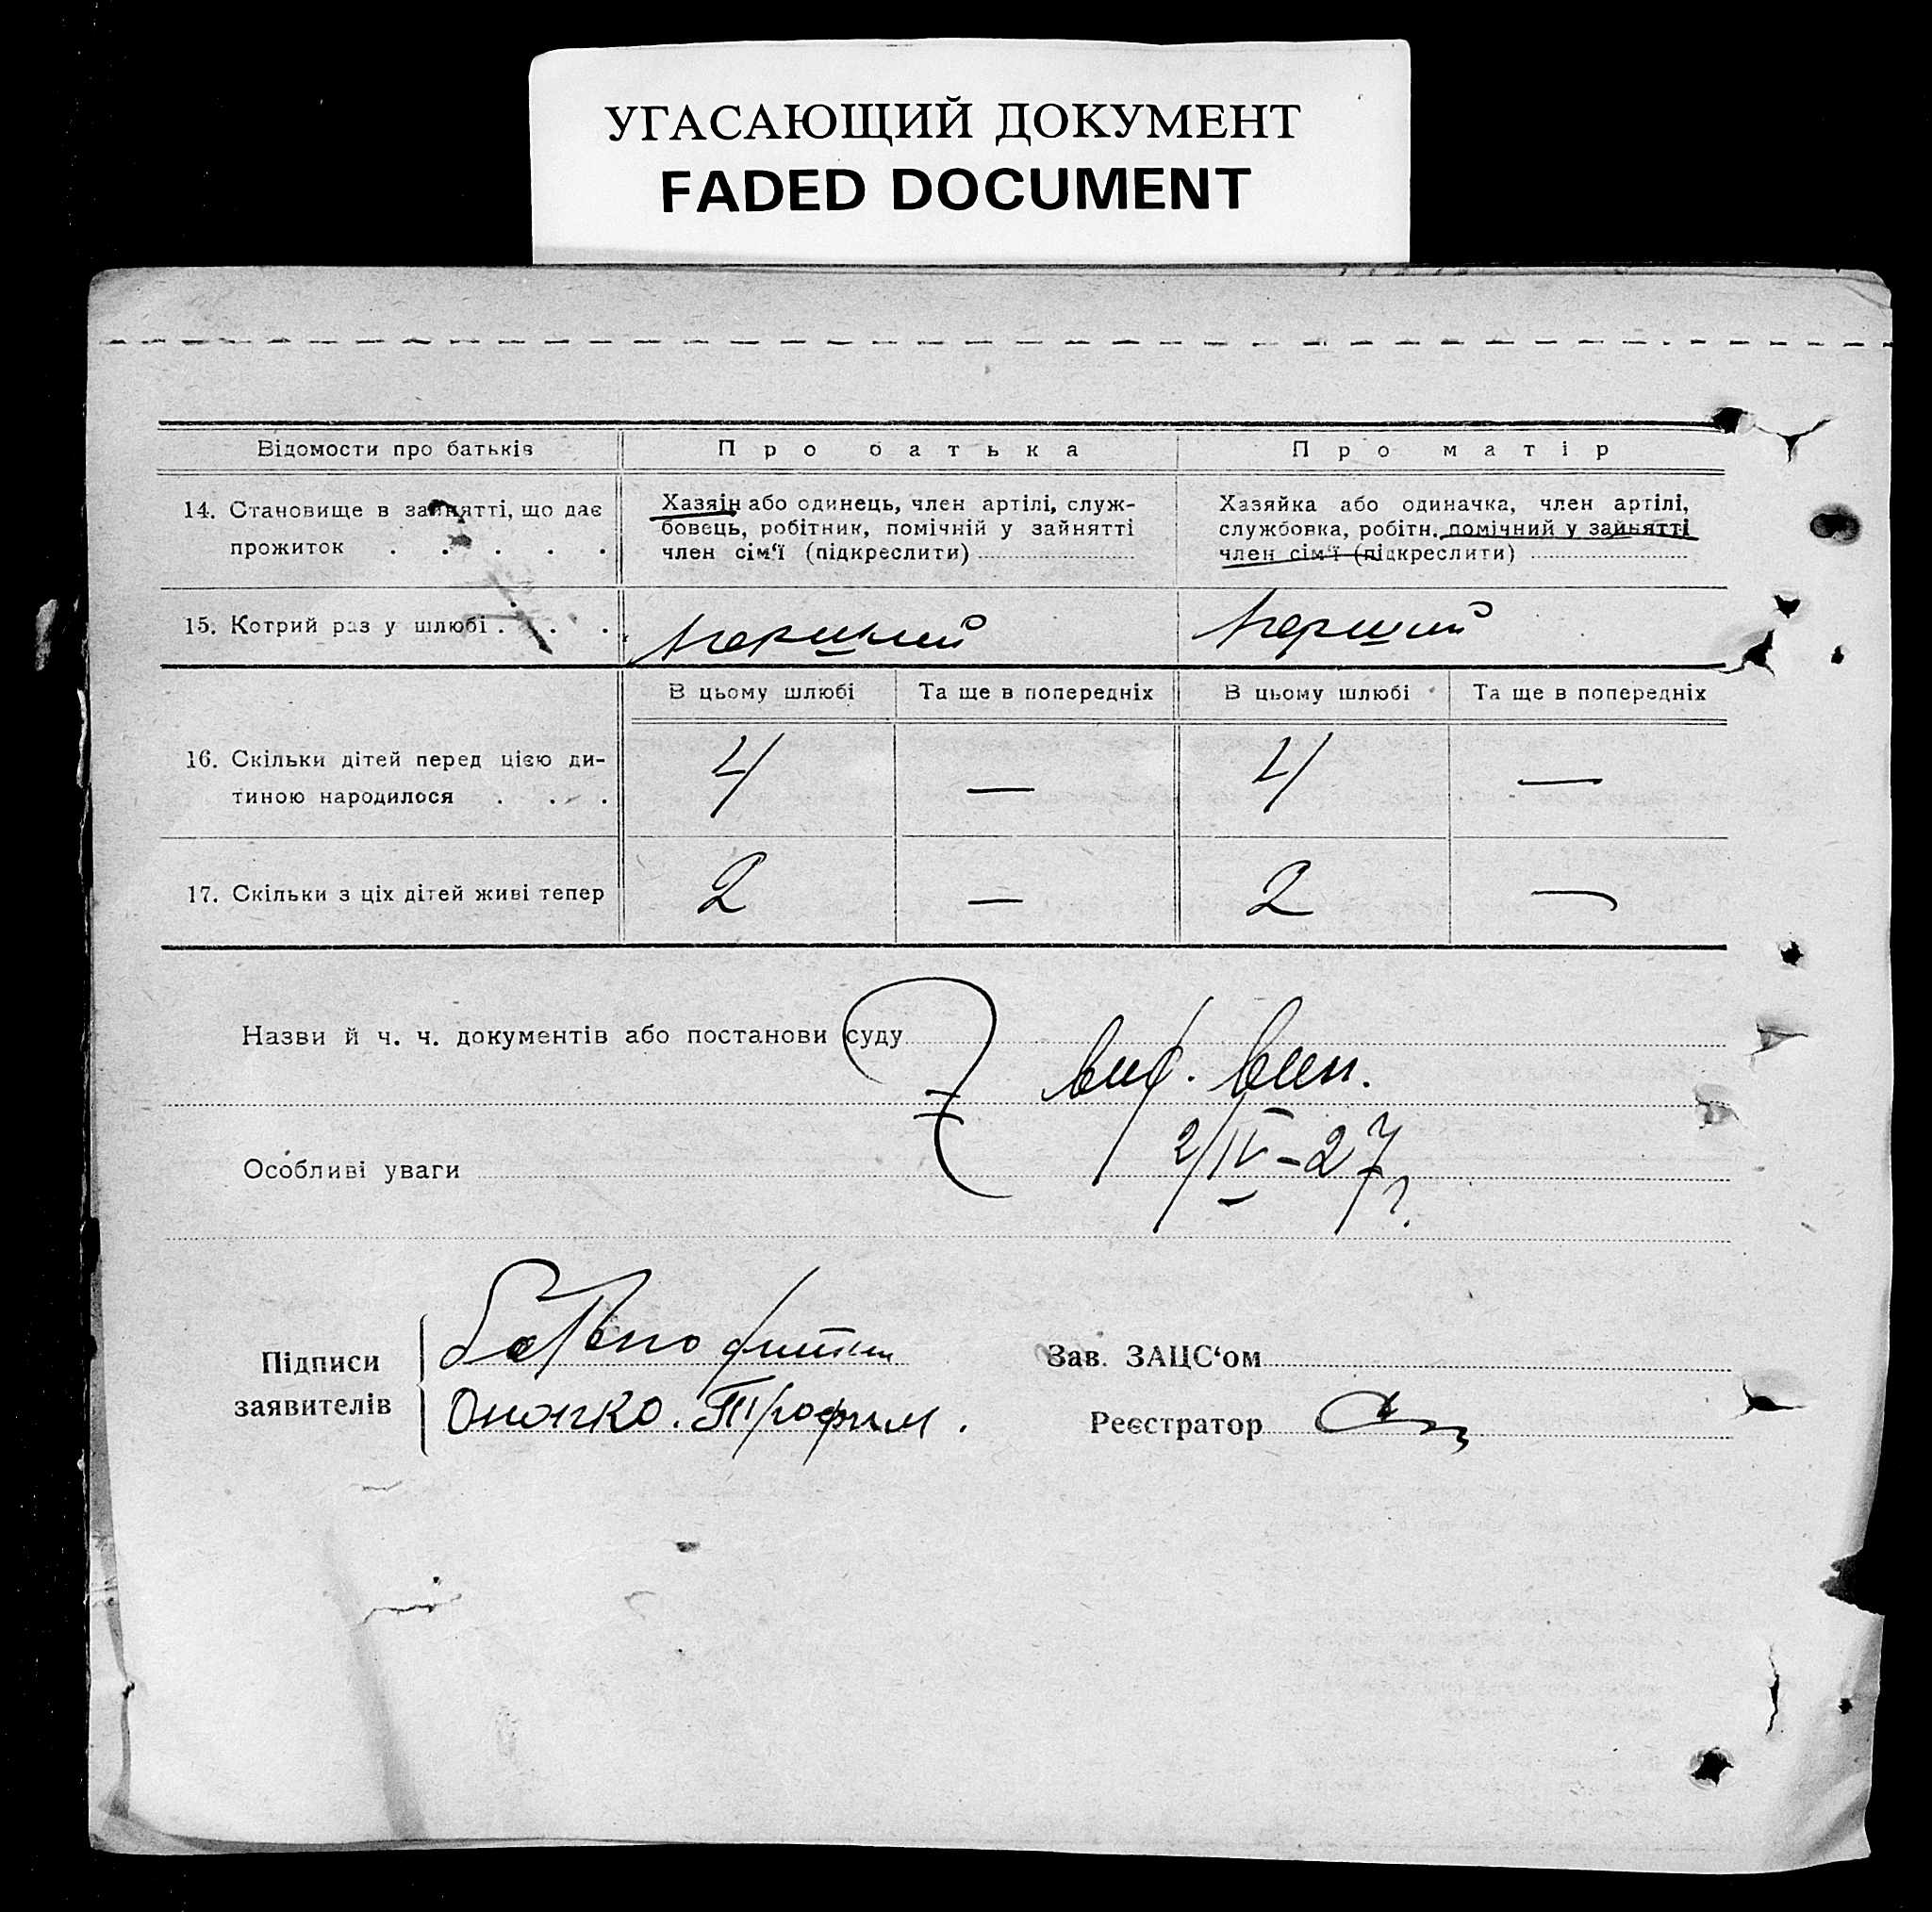 УГАСАЮЩИЙ ДОКУМЕНТ
FADED DOCUMENT
Відомости про батьків
Про батька
Про матір
14. Становище в зайнятті, що дає
прожиток . . . . .
Хазяїн або одинець, член артілі, служ-
бовець, робітник, помічній у зайнятті
член сім‘ї (підкреслити)
Хазяйка або одиначка, член артілі,
службовка, робітн. помічний у зайнятті
член сім‘ї (підкреслити)
15. Котрий раз у шлюбі . . .
перший
перший
В цьому шлюбі
Та ще в попередніх
В цьому шлюбі
Та ще в попередніх
16. Скільки дітей перед цією ди-
тиною народилося . . . .
4
—
4
—
17. Скільки з ціх дітей живі тепер
2
—
2
—
Назви й ч. ч. документів або постанови суду
вип.
2/IV-27р.
Особливі уваги
Підписи
заявителів
Онопко. Трофим.
Зав. ЗАЦС‘ом
Реєстратор